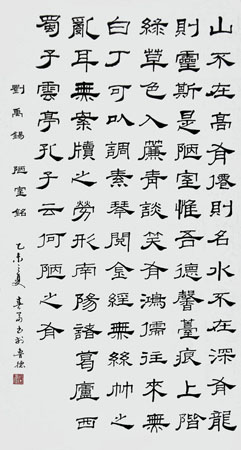 山不在高有僊則名水不在深有龍
則靈斯是陋室惟吾德馨薹痕上階
綠草色入簾青談笑有鴻儒往來無
白丁可以調素琴閱金經無絲竹之
亂耳無案牘之勞形南陽諸葛廬西
蜀子雲亭孔子云何陋之有
劉禹錫 陋室銘
乙未之夏